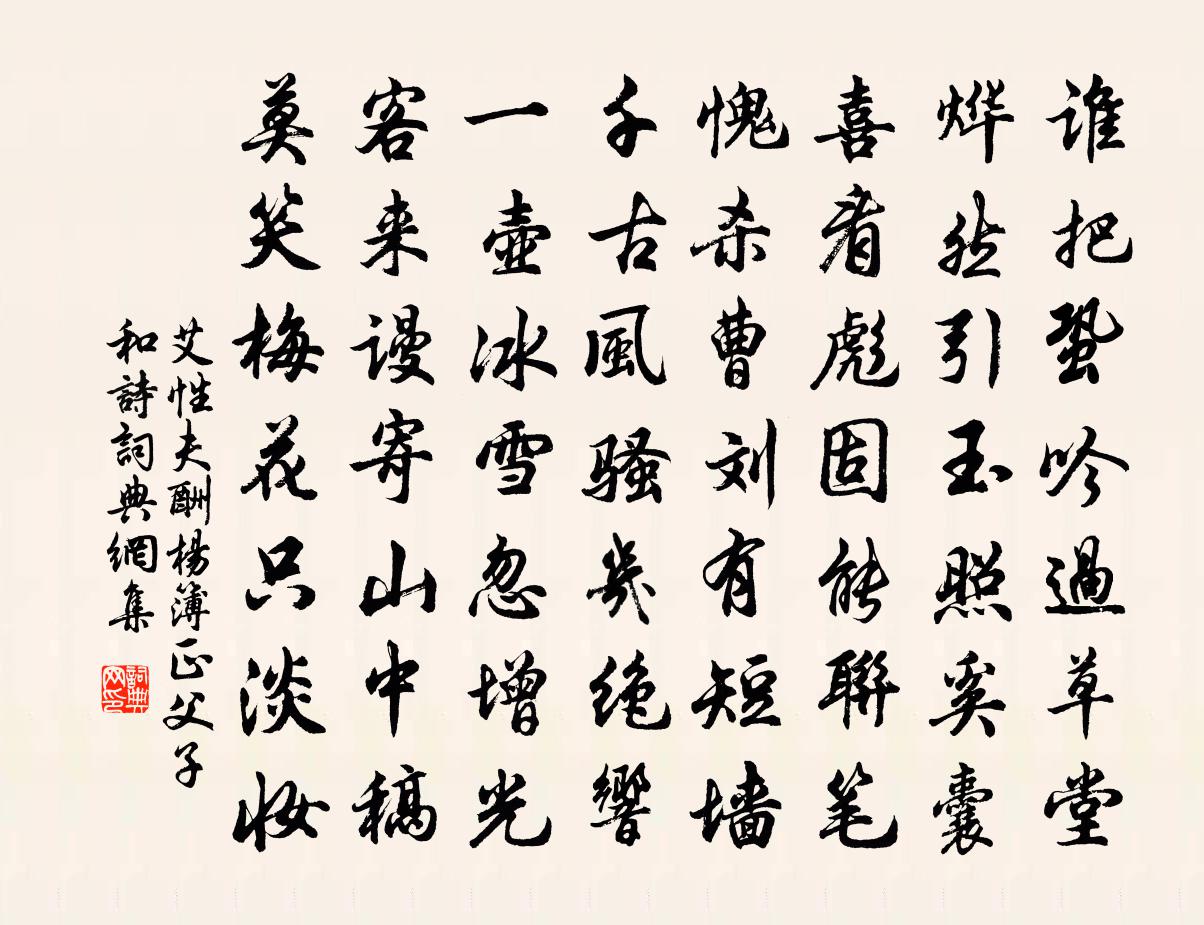 谁把蛩吟過草堂
烨然引玉照奚囊
喜看彪固能聯笔
愧杀曹刘有短墙
千古風骚幾绝響
一壶冰雪忽增光
客来谩寄山中稿
莫笑梅花只淡妆
艾性夫酬楊簿正父子
和詩詞典網集
詞典
网印